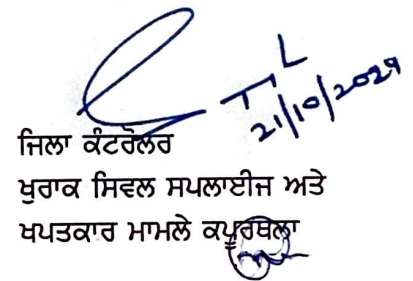 21/10/2021
ਜਿਲਾ ਕੰਟਰੋਲਰ
ਖੁਰਾਕ ਸਿਵਲ ਸਪਲਾਈਜ ਅਤੇ
ਖਪਤਕਾਰ ਮਾਮਲੇ ਕਪੂਰਥਲਾ